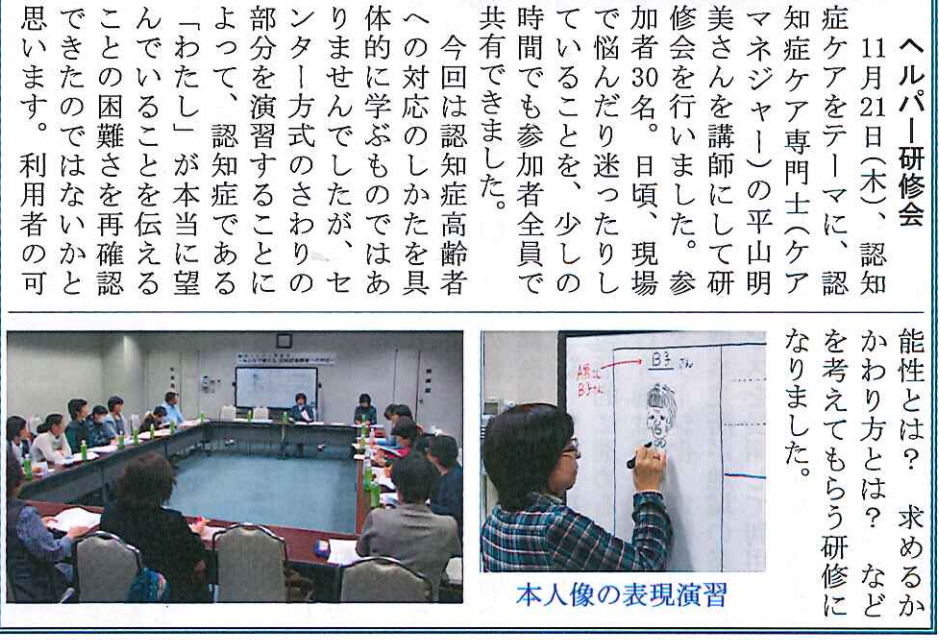 ヘルパー研修会
　11月21日(木)、認知
症ケアをテーマに、認
知症ケア専門士(ケア
マネジャー)の平山明
美さんを講師にして研
修会を行いました。参
加者30名。日頃、現場
で悩んだり迷ったりし
ていることを、少しの
時間でも参加者全員で
共有できました。
　今回は認知症高齢者
への対応のしかたを具
体的に学ぶものではあ
りませんでしたが、セ
ンター方式のさわりの
部分を演習することに
よって、認知症である
「わたし」が本当に望
んでいることを伝える
ことの困難さを再確認
できたのではないかと
思います。利用者の可
能性とは？　求めるか
かわり方とは？　など
を考えてもらう研修に
なりました。
B子さん
A男さん
B子さん
本人像の表現演習